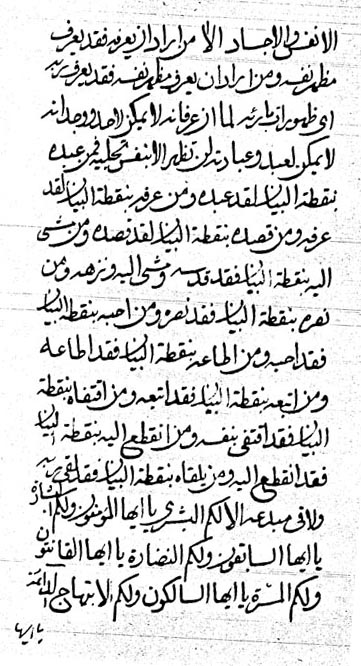 الانفس والاجساد الا من اراد ان يعرفه فقد يعرف
مظهر نفسه ومن اراد ان يعرف مظهر نفسه فقد يعرف ربه
اى ظهور الله لما ان عرفانه لا يمكن لاحد ووجدانه
لا يمكن لعبد وعبادته لن تظهر الا بنفس تجليه فمن عبده
بنقطة البيان لقد عبده ومن عرفه بنقطة البيان لقد
عرفه ومن قصده بنقطة البيان لقد قصده ومن مشى
اليه بنقطة البيان فقد مشى اليه ونزهه ومن
نصره بنقطة البيان فقد نصره ومن احبه بنقطة البيان
فقد احبه ومن اطاعه بنقطة البيان فقد اطاعه
ومن اتبعه بنقطة البيان فقد اتبعه ومن اقتفاه بنقطة
البيان فقد اقتفى بنفسه ومن انقطع اليه بنقطة البيان
فقد انقطع اليه ومن يلقاه بنقطة البيان فقد لقى ربه
ولاقى مبدعه الا لكم البشرى يا ايها المؤمنون ولكم
يا ايها السابقون ولكم النضارة يا ايها القانتون
ولكم المسرة يا ايها السالكون ولكم الابتهاج
يا ايها